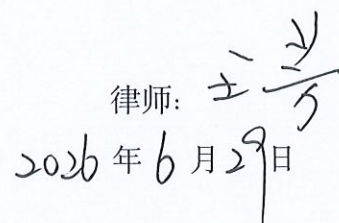 律师:
2026年6月29日